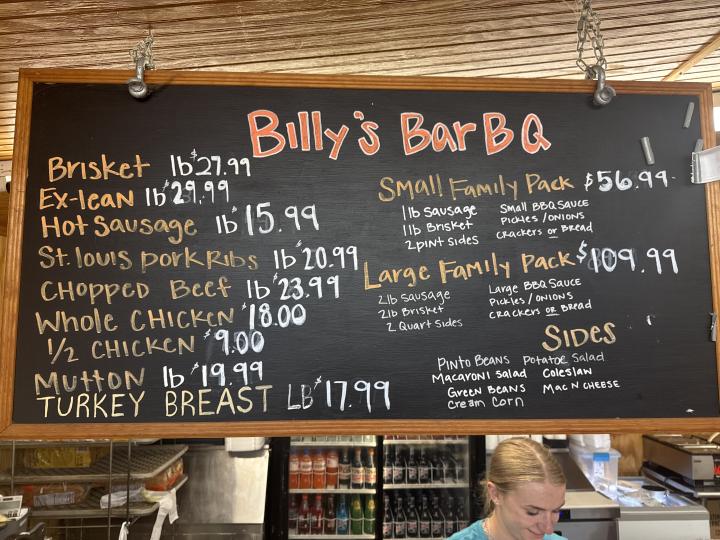 Billy's BarBQ
Brisket lb $27.99
Ex-lean lb $29.99
Hot Sausage lb $15.99
St. louis Pork Ribs lb $20.99
CHopped Beef lb $23.99
Whole CHICKEN $18.00
1/2 CHICKEN $9.00
Mutton lb $19.99
TURKEY BREAST LB $17.99
Small Family Pack $56.99
1lb Sausage
1lb Brisket
2pint sides
Small BBQ Sauce
Pickles/onions
crackers or Bread
Large Family Pack $109.99
2lb Sausage
2lb Brisket
2 Quart Sides
Large BBQ Sauce
Pickles/onions
crackers or Bread
Sides
Pinto Beans Potatoe Salad
Macaroni Salad Coleslaw
Green Beans Mac N CHEESE
Cream Corn